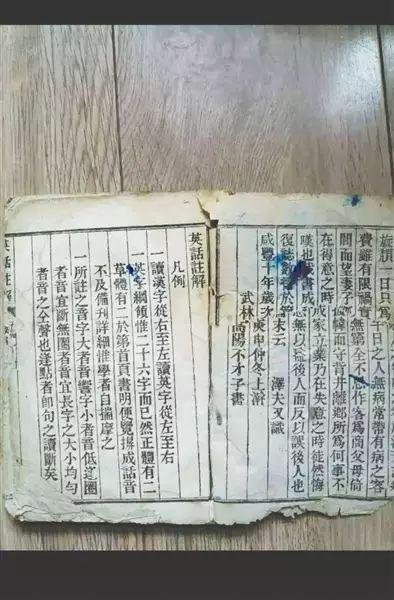 旋 一日只爲千日之人無病常帶有病之容
費雖有限禍實無 全不念作客爲商父母倚
閭而望妻子 幃而守背井離鄉所爲何事不
在得意之時成家立業乃在失意之時徒然悔
嘆也 書成 無以 後人而反以誤後人也
復誌數語於篇末云 澤夫又識
咸豐十年歲次庚申仲冬上澣
武林高陽不才子書
英話註解
凡例
一讀漢字從右至左讀英字從左至右
一英字綱領惟二十六字而已然正體有二
草體有二於第首頁書明便覽拼成話音
不及備刊詳細惟學者自揣摩之
一所註之音字大者音響字小者音低逗圈
者音宜斷無圈者音宜長字之大小均勻
者音之全聲也逢點者卽句之讀斷矣
英話註解